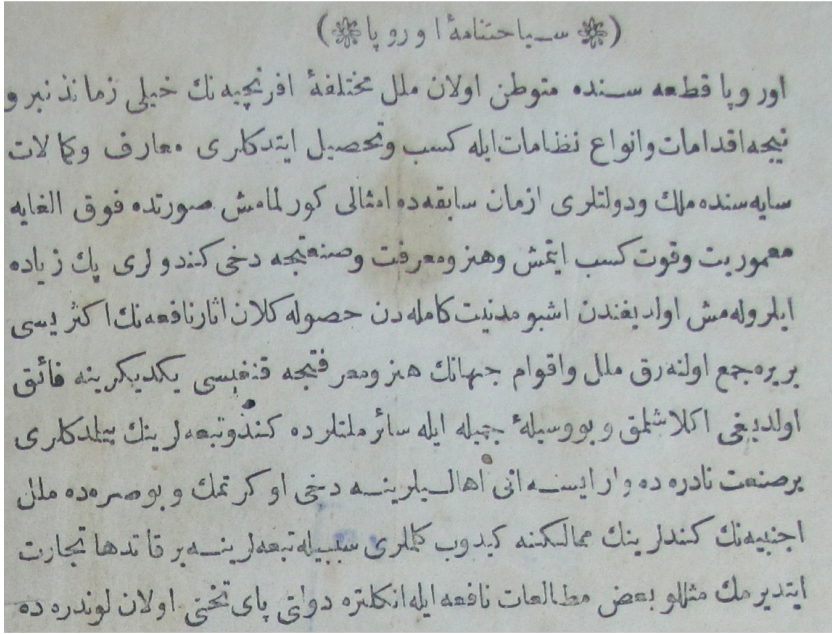 (❋ سـیاحتنامۀ اوروپا ❋)
اوروپا قطعه سـنده متوطن اولان ملل مختلفۀ افرنجیه نك خیلی زماندنبرو
نیجه اقدامات وانواع نظامات ایله کسب وتحصیل ایتدکلری معارف وکمالات
سایه سنده ملك ودولتلری ازمان سابقه ده امثالی کورلمامش صورتده فوق الغایه
معموریت وقوت کسب ایتمش وهنر ومعرفت وصنعتجه دخی کندولری پك زیاده
ایلرولەمش اولدیغندن اشبو مدنیت کامله دن حصوله کلان اثار نافعه نك اکثریسی
بریره جمع اولنه رق ملل واقوام جهانك هنر ومعرفتجه قنغیسی یکدیکرینه فائق
اولدیغی اکلاشلمق و بو وسیلۀ جمیله ایله سائر ملتلرده کندوتبعه لرینك بیلدکلری
برصنعت نادره ده وار ایسـه انی اهالـیلرینـه دخی اوکرتمك و بوصره ده ملل
اجنبیه نك کندلرینك ممالکنه کیدوب کلملری سببیله تبعه لرینـه بر قاتدها تجارت
ایتدیرمك مثللو بعض مطالعات نافعه ایله انکلتره دولتی پای تختی اولان لوندره ده